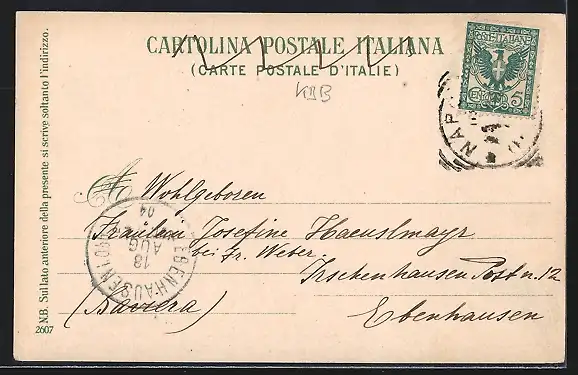 CARTOLINA POSTALE ITALIANA
(CARTE POSTALE D'ITALIE)
POSTE ITALIANE
CENTESIMI 5
NAPOLI
A Wohlgeboren
Fräulein Josefine Haeuslmayr
bei Fr. Weber
Irschenhausen Post n. 12
(Baviera)
Ebenhausen
EBENHAUSEN
18
AUG
04
N.B. Sul lato anteriore della presente si scrive soltanto l'indirizzo.
2607